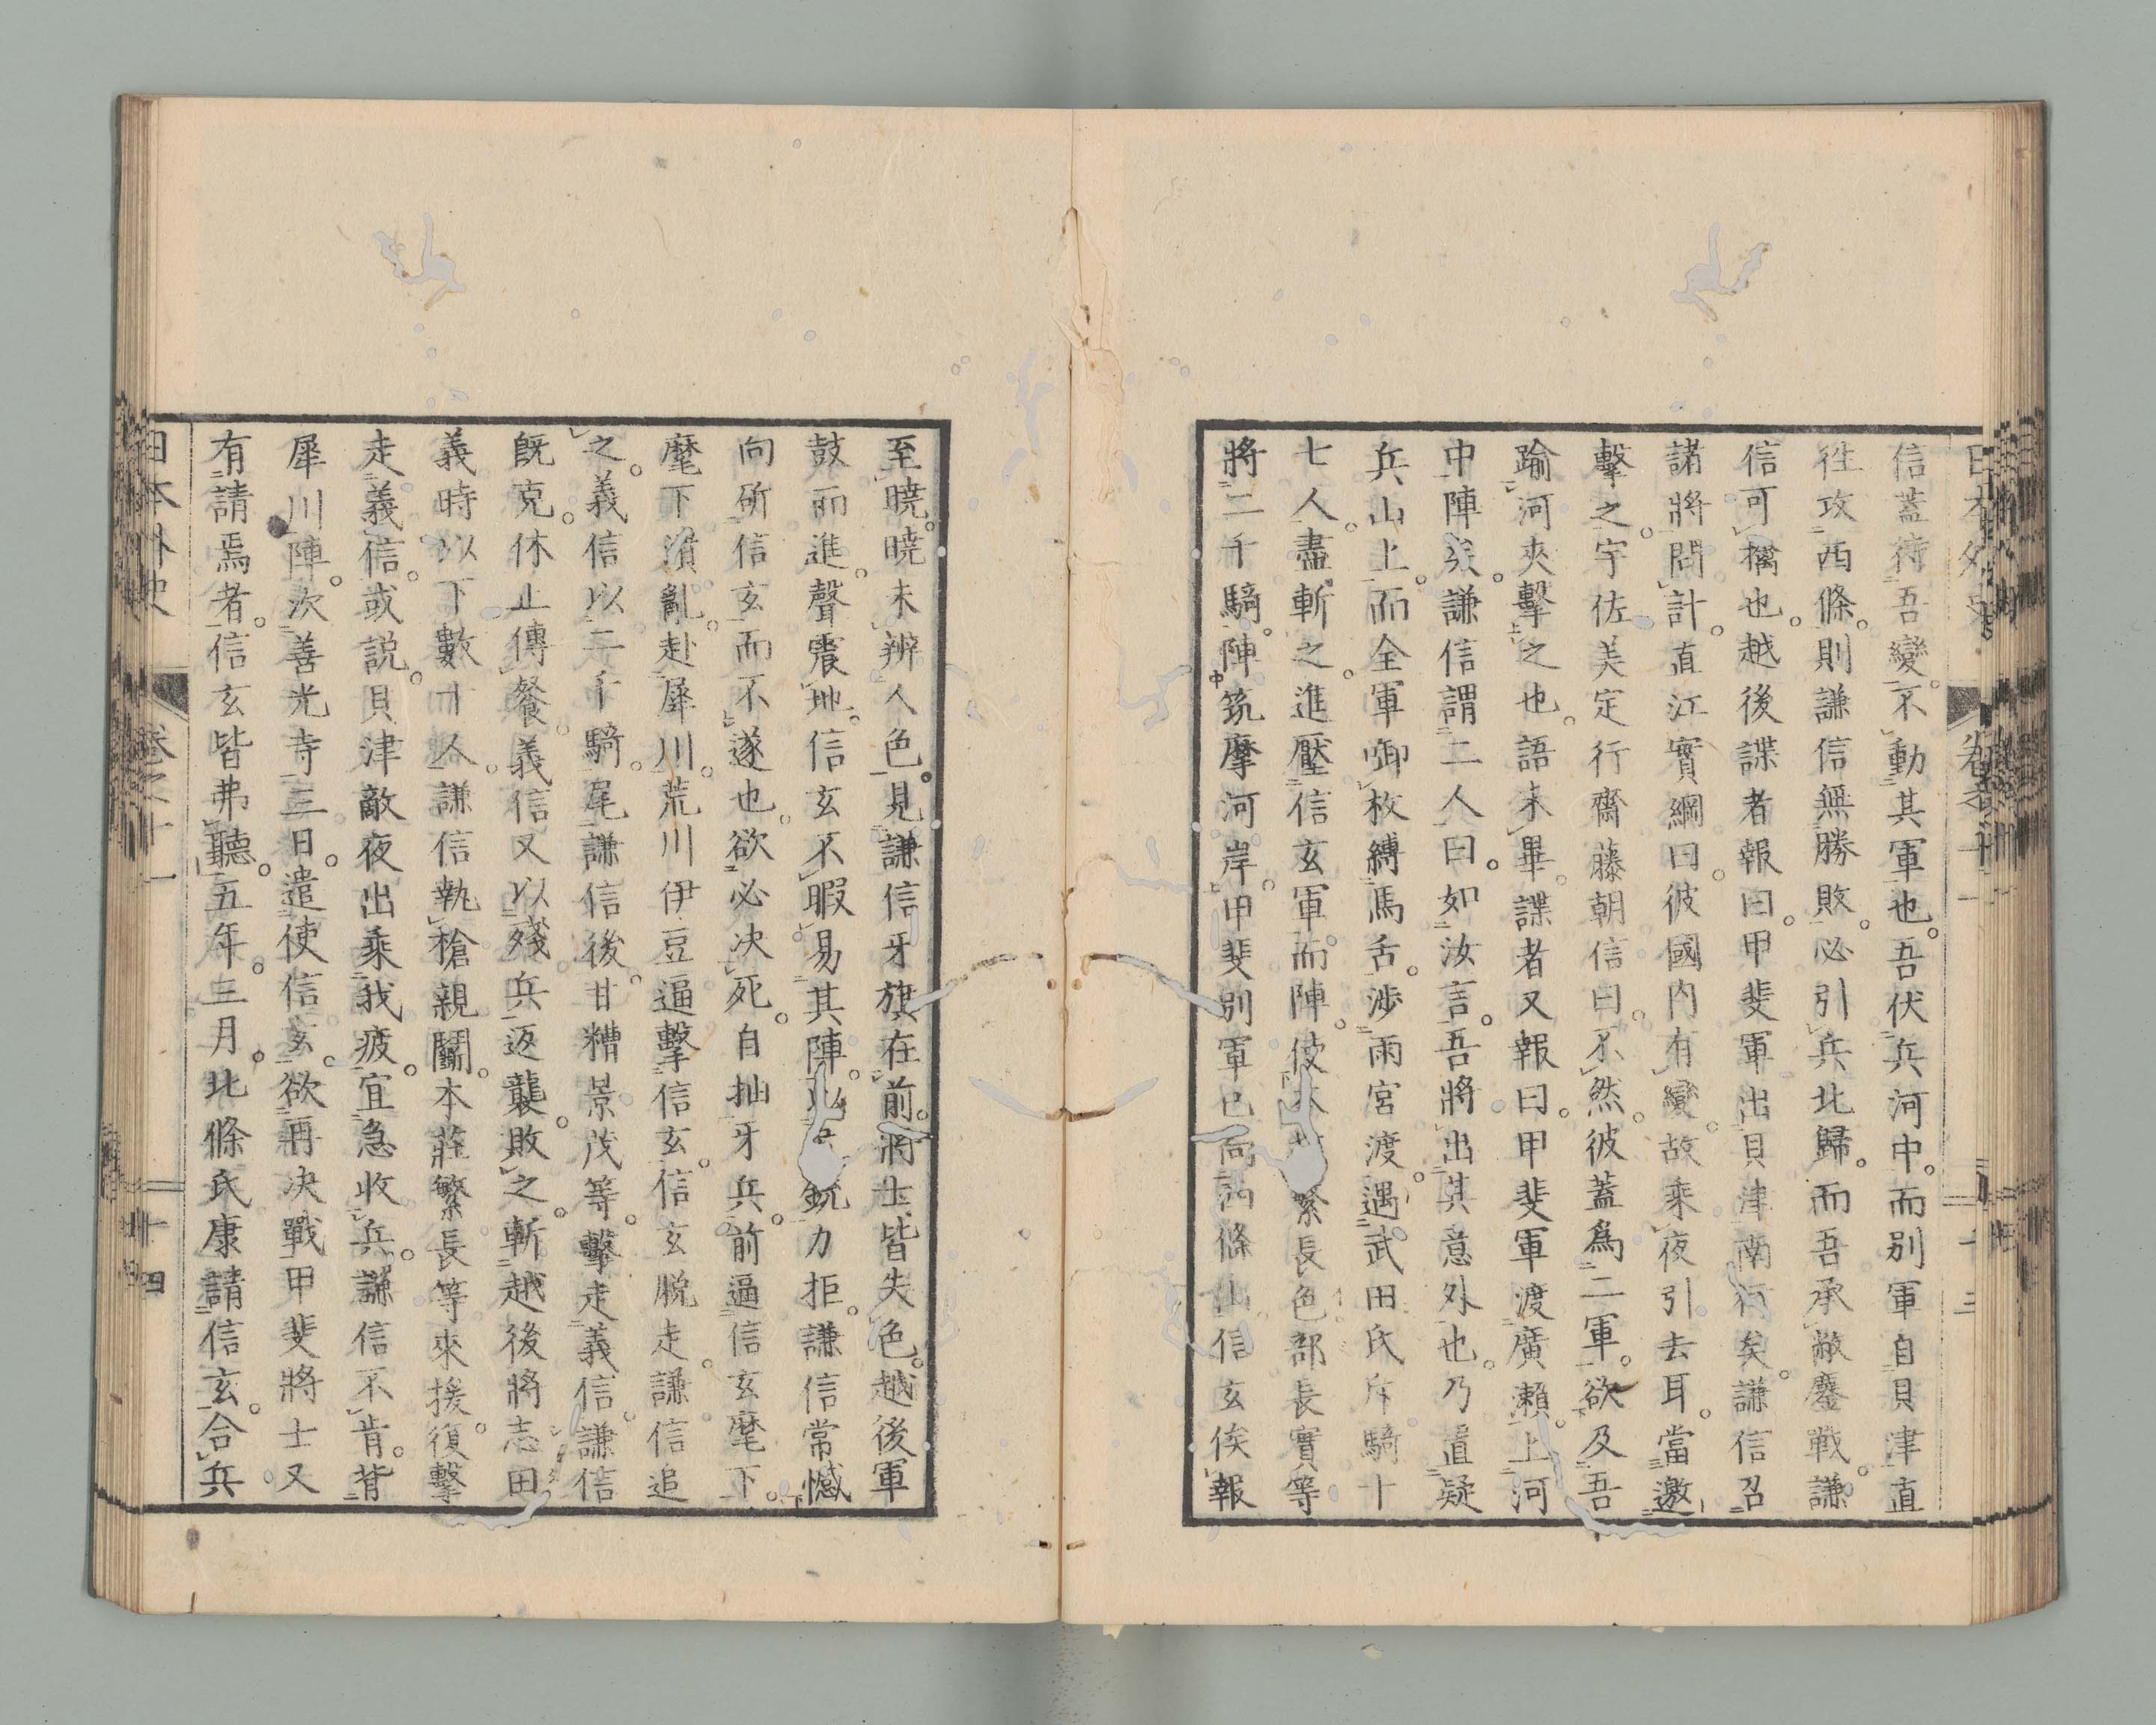 信蓋待吾變。不動其軍也。吾伏兵河中。而別軍自貝津直
往攻西條。則謙信無勝敗。必引兵北歸。而吾承敝鏖戰。謙
信可擒也。越後諜者報曰。甲斐軍出貝津南行矣。謙信召
諸將問計。直江實綱曰。彼國内有變。故乘夜引去耳。當邀
擊之。宇佐美定行齋藤朝信曰。不然。彼蓋爲二軍。欲及吾
踰河夾擊之也。語未畢。諜者又報曰。甲斐軍渡廣瀨。上河
中陣矣。謙信謂二人曰。如汝言。吾將出其意外也。乃置疑
兵山上。而全軍啣枚縛馬舌。渉雨宮渡。遇武田氏斥騎十
七人。盡斬之。進壓信玄軍。而陣。使本莊繁長色部長實等
將二千騎。陣筑摩河岸。甲斐別軍也向西條山信玄俟報
至曉。曉未辨人色。見謙信牙旗在前。將士皆失色。越後軍
鼓而進。聲震地。信玄不暇易其陣。銃力拒。謙信常憾
向斫信玄而不遂也。欲必决死。自抽牙兵。前逼信玄麾下。
麾下潰亂。赴犀川。荒川伊豆逼擊信玄。信玄脱走。謙信追
之。義信以二千騎。尾謙信後。甘糟景茂等。擊走義信。謙信
既克。休止傳餐。義信又以殘兵返襲。敗之。斬越後將志田
義時以下數十人。謙信執槍親鬭。本莊繁長等來援。復擊
走義信。或説。貝津敵夜出乘我疲。宜急收兵。謙信不肯。背
犀川陣。次善光寺三日。遣使信玄。欲再决戰甲斐將士又
有請焉者。信玄皆弗聽。五年。三月。北條氏康請信玄。合兵
日本外史 卷之十一 廿四